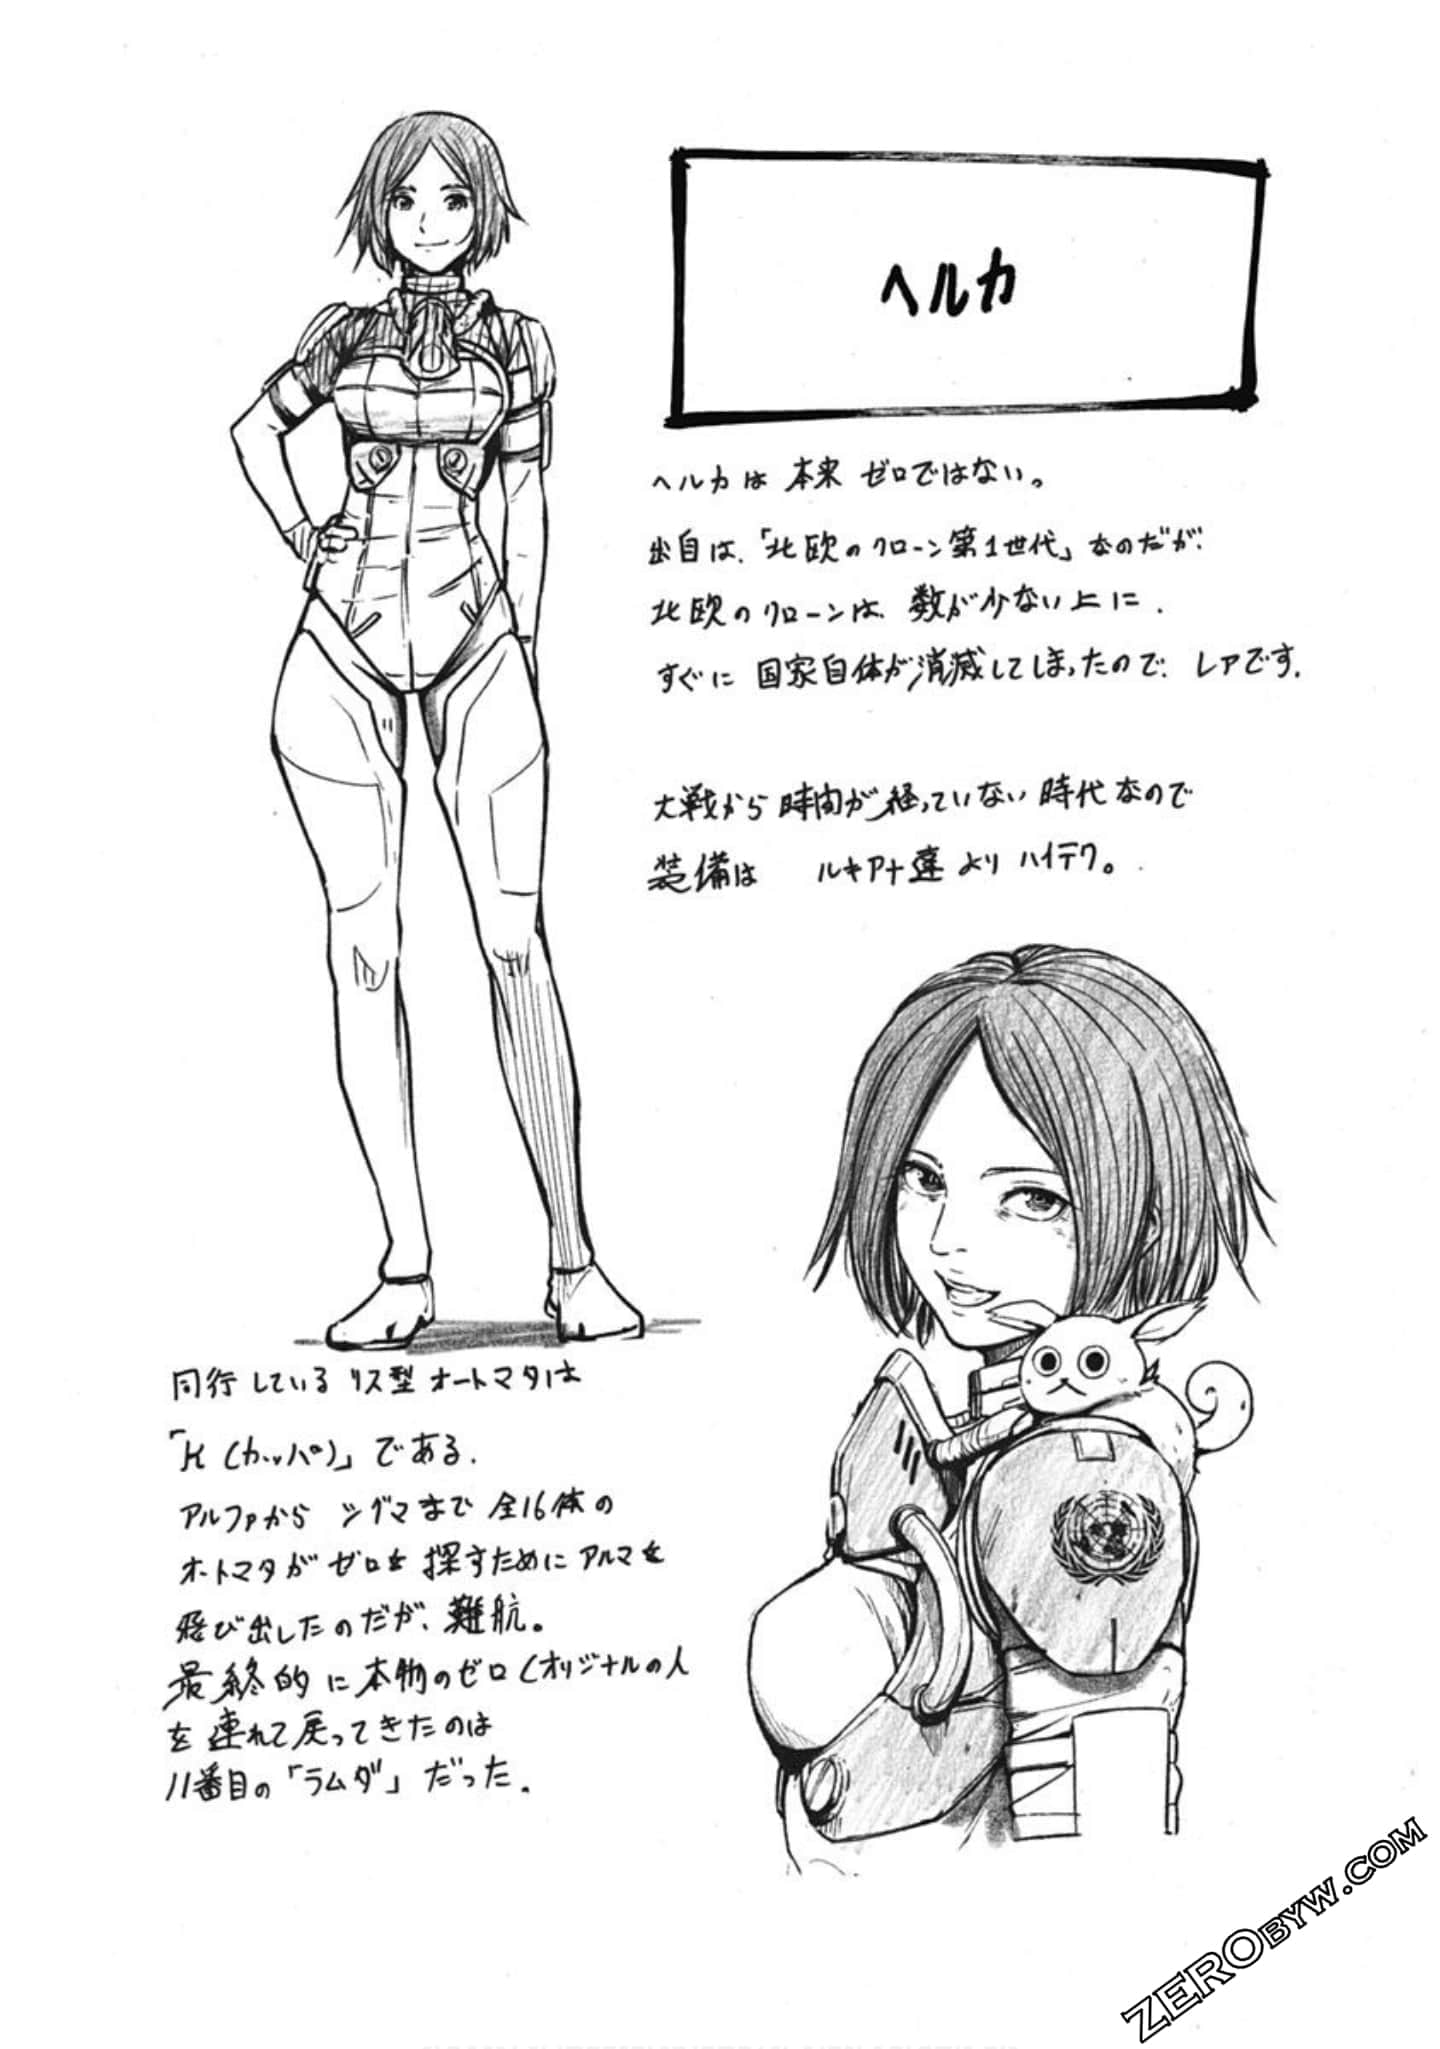 ヘルカ
ヘルカは 本来 ゼロではない。
出自は、「北欧のクローン第1世代」なのだが、
北欧のクローンは、数が少ない上に、
すぐに 国家自体が消滅してしまったので、レアです。
大戦から時間が経っていない時代なので
装備は ルキアナ達よりハイテク。
同行している リス型オートマタは
「Κ(カッパ)」である。
アルファから シグマまで 全16体の
オートマタが ゼロを 探すために アルマを
飛び出したのだが、難航。
最終的に 本物のゼロ(オリジナルの人
を 連れて戻ってきたのは
11番目の「ラムダ」だった。
ZEROBYW.COM